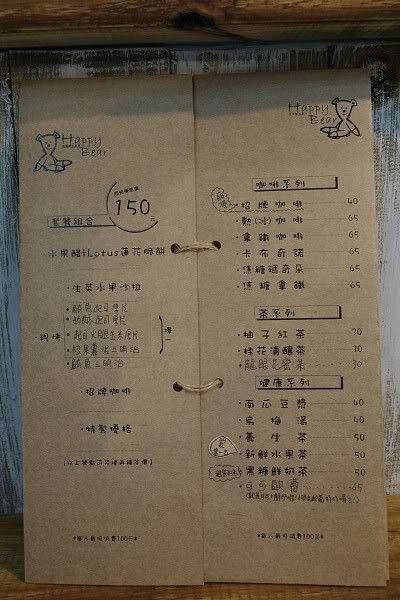 Happy
Bear
150元
套餐組合
·水果醋+Lotus蓮花脆餅
·生菜水果沙拉
·鮪魚起司厚片
現烤
擇一
·起司火腿玉米厚片
·鮪魚三明治
·招牌咖啡
·特製優格
*每人最低消費100元*
Happy
Bear
咖啡系列
·招牌咖啡 40
·熱(冰)咖啡 65
·拿鐵咖啡 65
·卡布奇諾 65
·焦糖瑪奇朵 65
·焦糖拿鐵 65
茶系列
·柚子紅茶 30
·桂花清釀茶 30
·龍眼花蜜茶 30
健康系列
·南瓜豆漿 40
·烏梅湯 40
·養生茶 50
·新鮮水果茶 50
·黑糖鮮奶茶 50
·可可歐蕾 65
*每人最低消費100元*